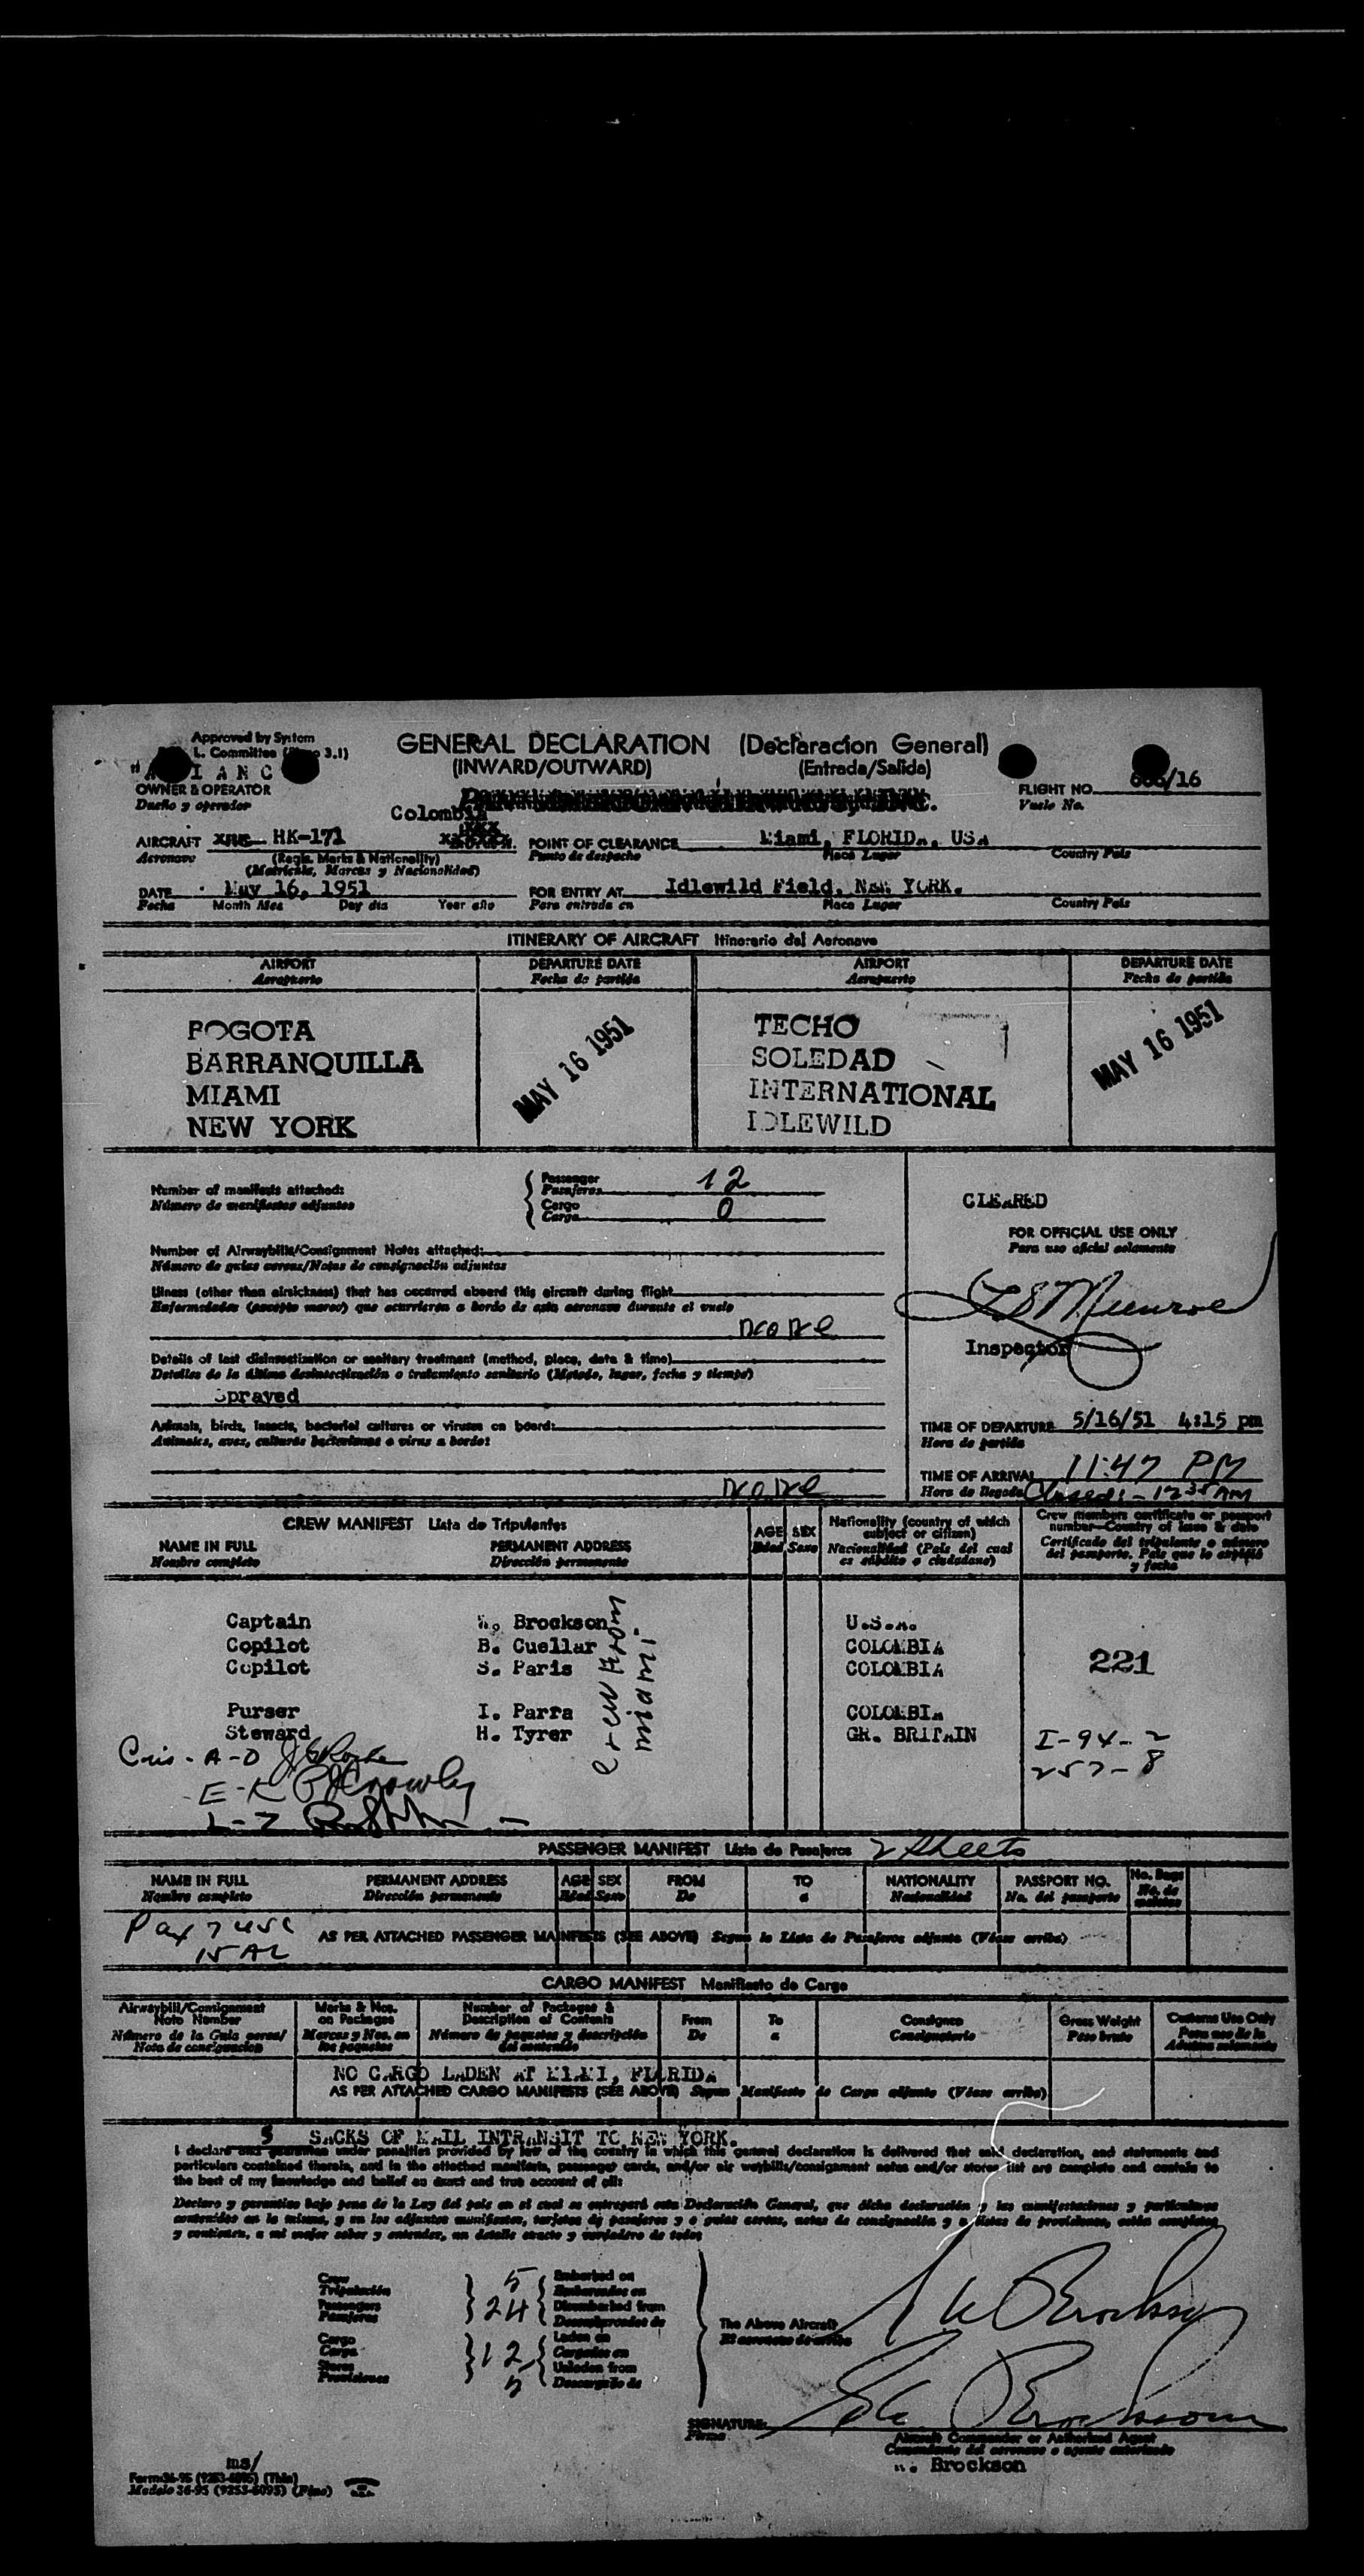 Approved by System
L. Committee 3.1)
GENERAL DECLARATION (Declaracion General)
(INWARD/OUTWARD) (Entrada/Salida)
OWNER & OPERATOR
Dueño y operador
FLIGHT NO. /16
Vuelo No.
Colombia
AIRCRAFT HK-171
Aeronave (Regis. Marks & Nationality)
(Matricula, Marcas y Nacionalidad)
POINT OF CLEARANCE Miami, FLORIDA, USA
Punto de despacho Place Lugar Country Pais
DATE May 16, 1951
Fecha Month Mes Day dia Year año
FOR ENTRY AT Idlewild Field, NEW YORK.
Para entrada en Place Lugar Country Pais
ITINERARY OF AIRCRAFT Itinerario del Aeronave
AIRPORT DEPARTURE DATE AIRPORT DEPARTURE DATE
Aeropuerto Fecha de partida Aeropuerto Fecha de partida
BOGOTA TECHO
BARRANQUILLA SOLEDAD
MIAMI INTERNATIONAL
NEW YORK IDLEWILD
MAY 16 1951 MAY 16 1951
Number of manifests attached:
Número de manifiestos adjuntos
Passenger
Pasajeros 12
Cargo
Carga 0
Number of Airwaybills/Consignment Notes attached:
Número de guías aereas/Notas de consignación adjuntas
Illness (other than airsickness) that has occurred aboard this aircraft during flight
Enfermedades (excepto mareo) que ocurrieron a bordo de esta aeronave durante el vuelo
none
Details of last disinsectization or sanitary treatment (method, place, date & time)
Detalles de la última desinsectización o tratamiento sanitario (Método, lugar, fecha y tiempo)
Sprayed
Animals, birds, insects, bacterial cultures or viruses on board:
Animales, aves, insectos, culturas bacterianas o virus a bordo:
none
CLEARED
FOR OFFICIAL USE ONLY
Para uso oficial solamente
L S Munroe
Inspector
TIME OF DEPARTURE 5/16/51 4:15 pm
Hora de partida
TIME OF ARRIVAL 11:47 PM
Hora de llegada Closed:- 12 35 AM
CREW MANIFEST Lista de Tripulantes
NAME IN FULL PERMANENT ADDRESS
Nombre completo Dirección permanente
AGE SEX
Edad Sexo
Nationality (country of which
subject or citizen)
Nacionalidad (Pais del cual
es súbdito o ciudadano)
Crew members certificate or passport
number—Country of issue & date
Certificado del tripulante o número
del pasaporte. Pais que lo expidió
y fecha
Captain W. Brockson U.S.A.
Copilot B. Cuellar COLOMBIA
Copilot S. Paris COLOMBIA 221
Purser I. Parra COLOMBIA
Steward H. Tyrer GR. BRITAIN
crew from
miami
I-94-2
257-8
A-D
E-K
L-Z
PASSENGER MANIFEST Lista de Pasajeros 2 Sheets
NAME IN FULL PERMANENT ADDRESS AGE SEX FROM TO NATIONALITY PASSPORT NO. No. Bags
Nombre completo Dirección permanente Edad Sexo De a Nacionalidad No. del pasaporte No. de maletas
Pax 7 USC
15 AL
AS PER ATTACHED PASSENGER MANIFESTS (SEE ABOVE) Segun la Lista de Pasajeros adjunta (Véase arriba)
CARGO MANIFEST Manifiesto de Carga
Airwaybill/Consignment
Note Number
Número de la Guia aerea/
Nota de consignacion
Marks & Nos.
on Packages
Marcas y Nos. en
los paquetes
Number of Packages &
Description of Contents
Número de paquetes y descripción
del contenido
From
De
To
a
Consignee
Consignatario
Gross Weight
Peso bruto
Customs Use Only
Para uso de la
Aduana solamente
NO CARGO LADEN AT MIAMI, FLORIDA
AS PER ATTACHED CARGO MANIFESTS (SEE ABOVE) Segun Manifiesto de Carga adjunto (Véase arriba)
SACKS OF MAIL INTRANSIT TO NEW YORK.
I declare and guarantee under penalties provided by law of the country in which this general declaration is delivered that said declaration, and statements and
particulars contained therein, and in the attached manifests, passenger cards, and/or air waybills/consignment notes and/or stores list are complete and contain to
the best of my knowledge and belief an exact and true account of all:
Declaro y garantizo bajo pena de la Ley del pais en el cual se entregará esta Declaración General, que dicha declaración y las manifestaciones y particulares
contenidos en la misma, y en los adjuntos manifiestos, tarjetas de pasajeros y o guias aereas, notas de consignación y o listas de provisiones, están completos
y contienen, a mi mejor saber y entender, un detalle exacto y verdadero de todos
Crew
Tripulación 5
Passengers
Pasajeros 24
Cargo
Carga 12
Stores
Provisiones
Embarked on
Embarcados en
Disembarked from
Desembarcados de
Laden on
Cargados en
Unladen from
Descargado de
The Above Aircraft
El aeronave de arriba
W Brockson
SIGNATURE:
Firma
Aircraft Commander or Authorized Agent
Comandante del aeronave o agente autorizado
W. Brockson
ms/
Form 36-95 (9253-6095) (Thin)
Modelo 36-95 (9253-6095) (Fino)